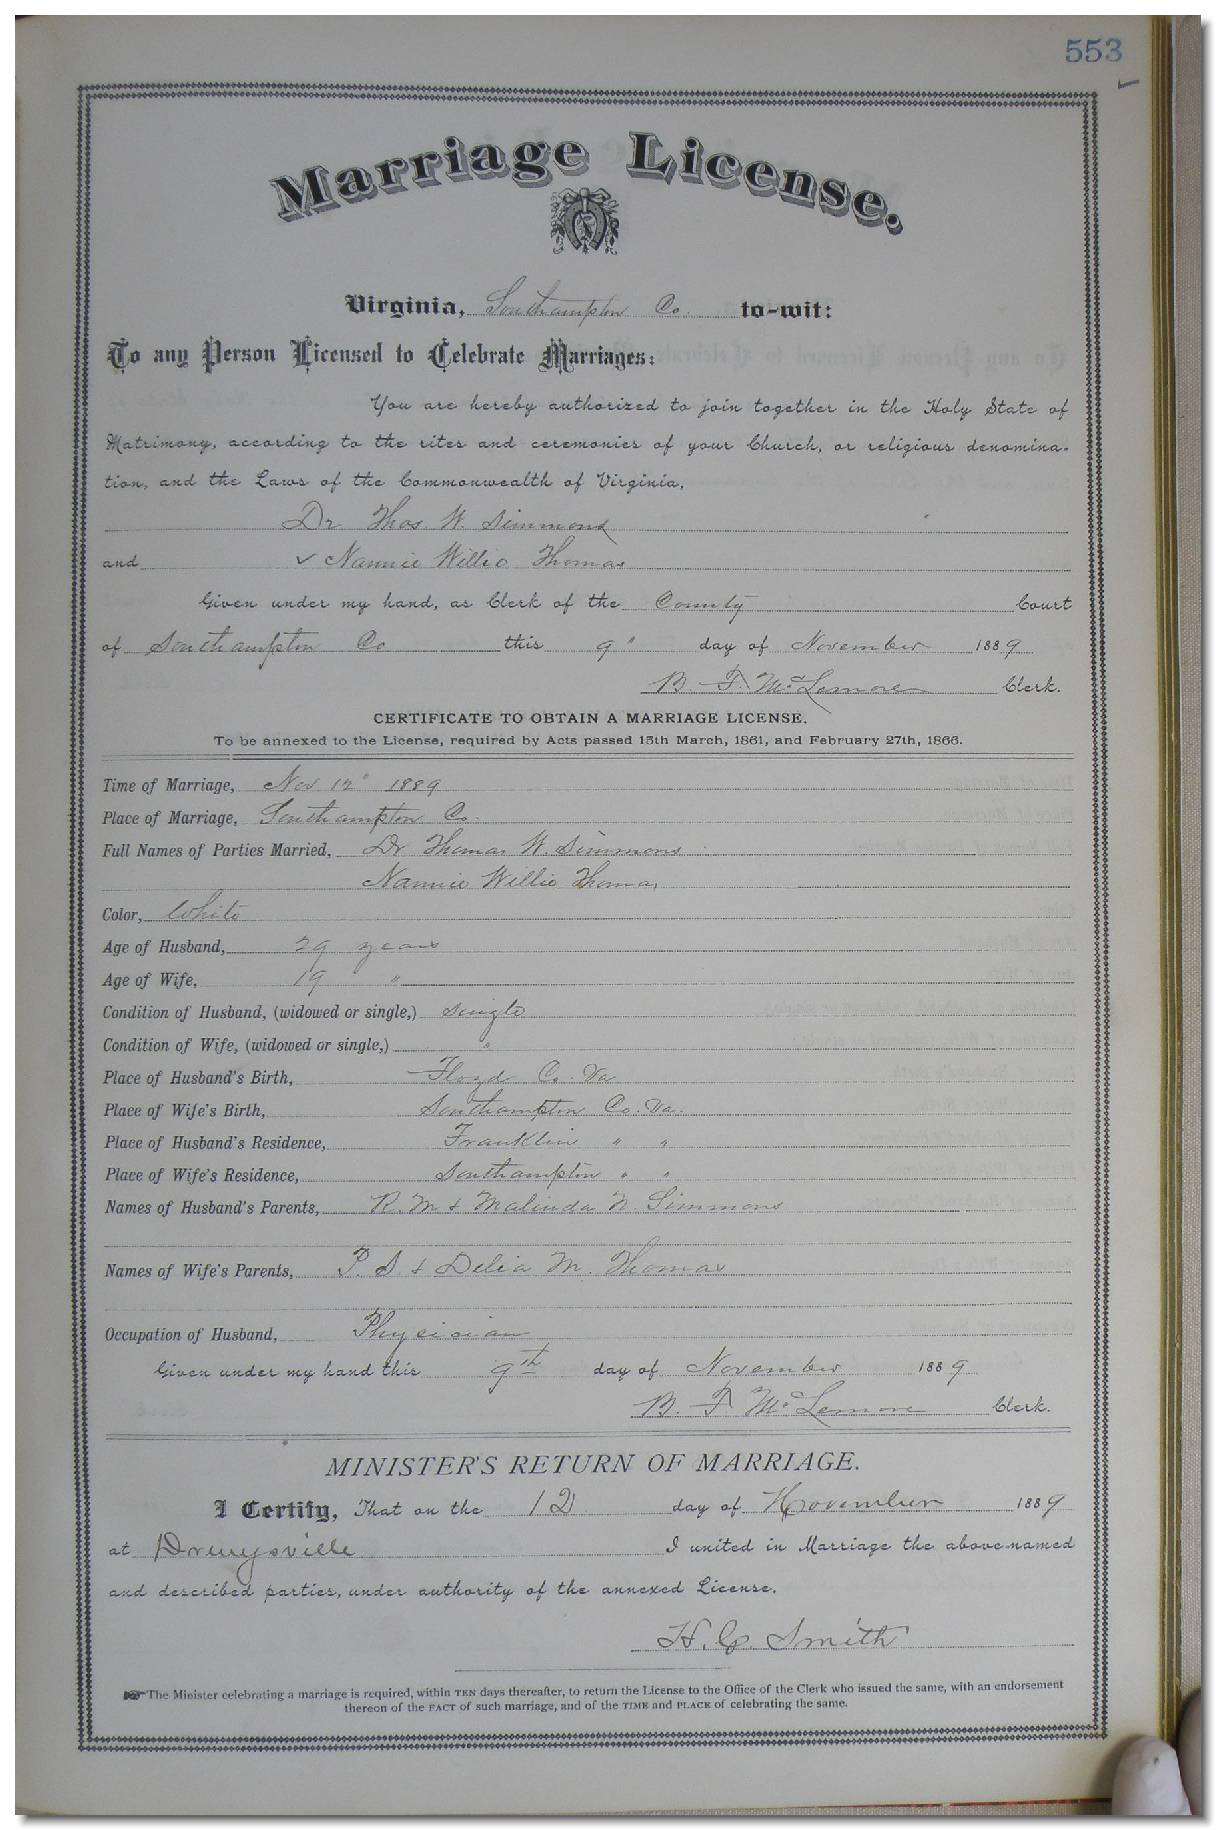 553
Marriage License.
Virginia, Southampton Co. to-wit:
To any Person Licensed to Celebrate Marriages:
You are hereby authorized to join together in the Holy State of
Matrimony, according to the rites and ceremonies of your Church, or religious denomina-
tion, and the Laws of the Commonwealth of Virginia,
Dr. Thos. W. Simmons
and ✓ Nannie Willie Thomas
Given under my hand, as Clerk of the County Court
of Southampton Co this 9" day of November 1889
B. F. McLemore Clerk.
CERTIFICATE TO OBTAIN A MARRIAGE LICENSE.
To be annexed to the License, required by Acts passed 15th March, 1861, and February 27th, 1866.
Time of Marriage, Nov 12" 1889
Place of Marriage, Southampton Co.
Full Names of Parties Married, Dr Thomas W. Simmons
Nannie Willie Thomas
Color, White
Age of Husband, 29 years
Age of Wife, 19 "
Condition of Husband, (widowed or single,) Single
Condition of Wife, (widowed or single,) "
Place of Husband's Birth, Floyd Co. Va
Place of Wife's Birth, Southampton Co. Va.
Place of Husband's Residence, Franklin " "
Place of Wife's Residence, Southampton " "
Names of Husband's Parents, R. M & Malinda N. Simmons
Names of Wife's Parents, P. S. & Delia M. Thomas
Occupation of Husband, Physician
Given under my hand this 9th day of November 1889
B. F. McLemore Clerk.
MINISTER'S RETURN OF MARRIAGE.
I Certify, That on the 12 day of November 1889
at Drewysville I united in Marriage the above-named
and described parties, under authority of the annexed License.
H. C. Smith
☞The Minister celebrating a marriage is required, within TEN days thereafter, to return the License to the Office of the Clerk who issued the same, with an endorsement
thereon of the FACT of such marriage, and of the TIME and PLACE of celebrating the same.